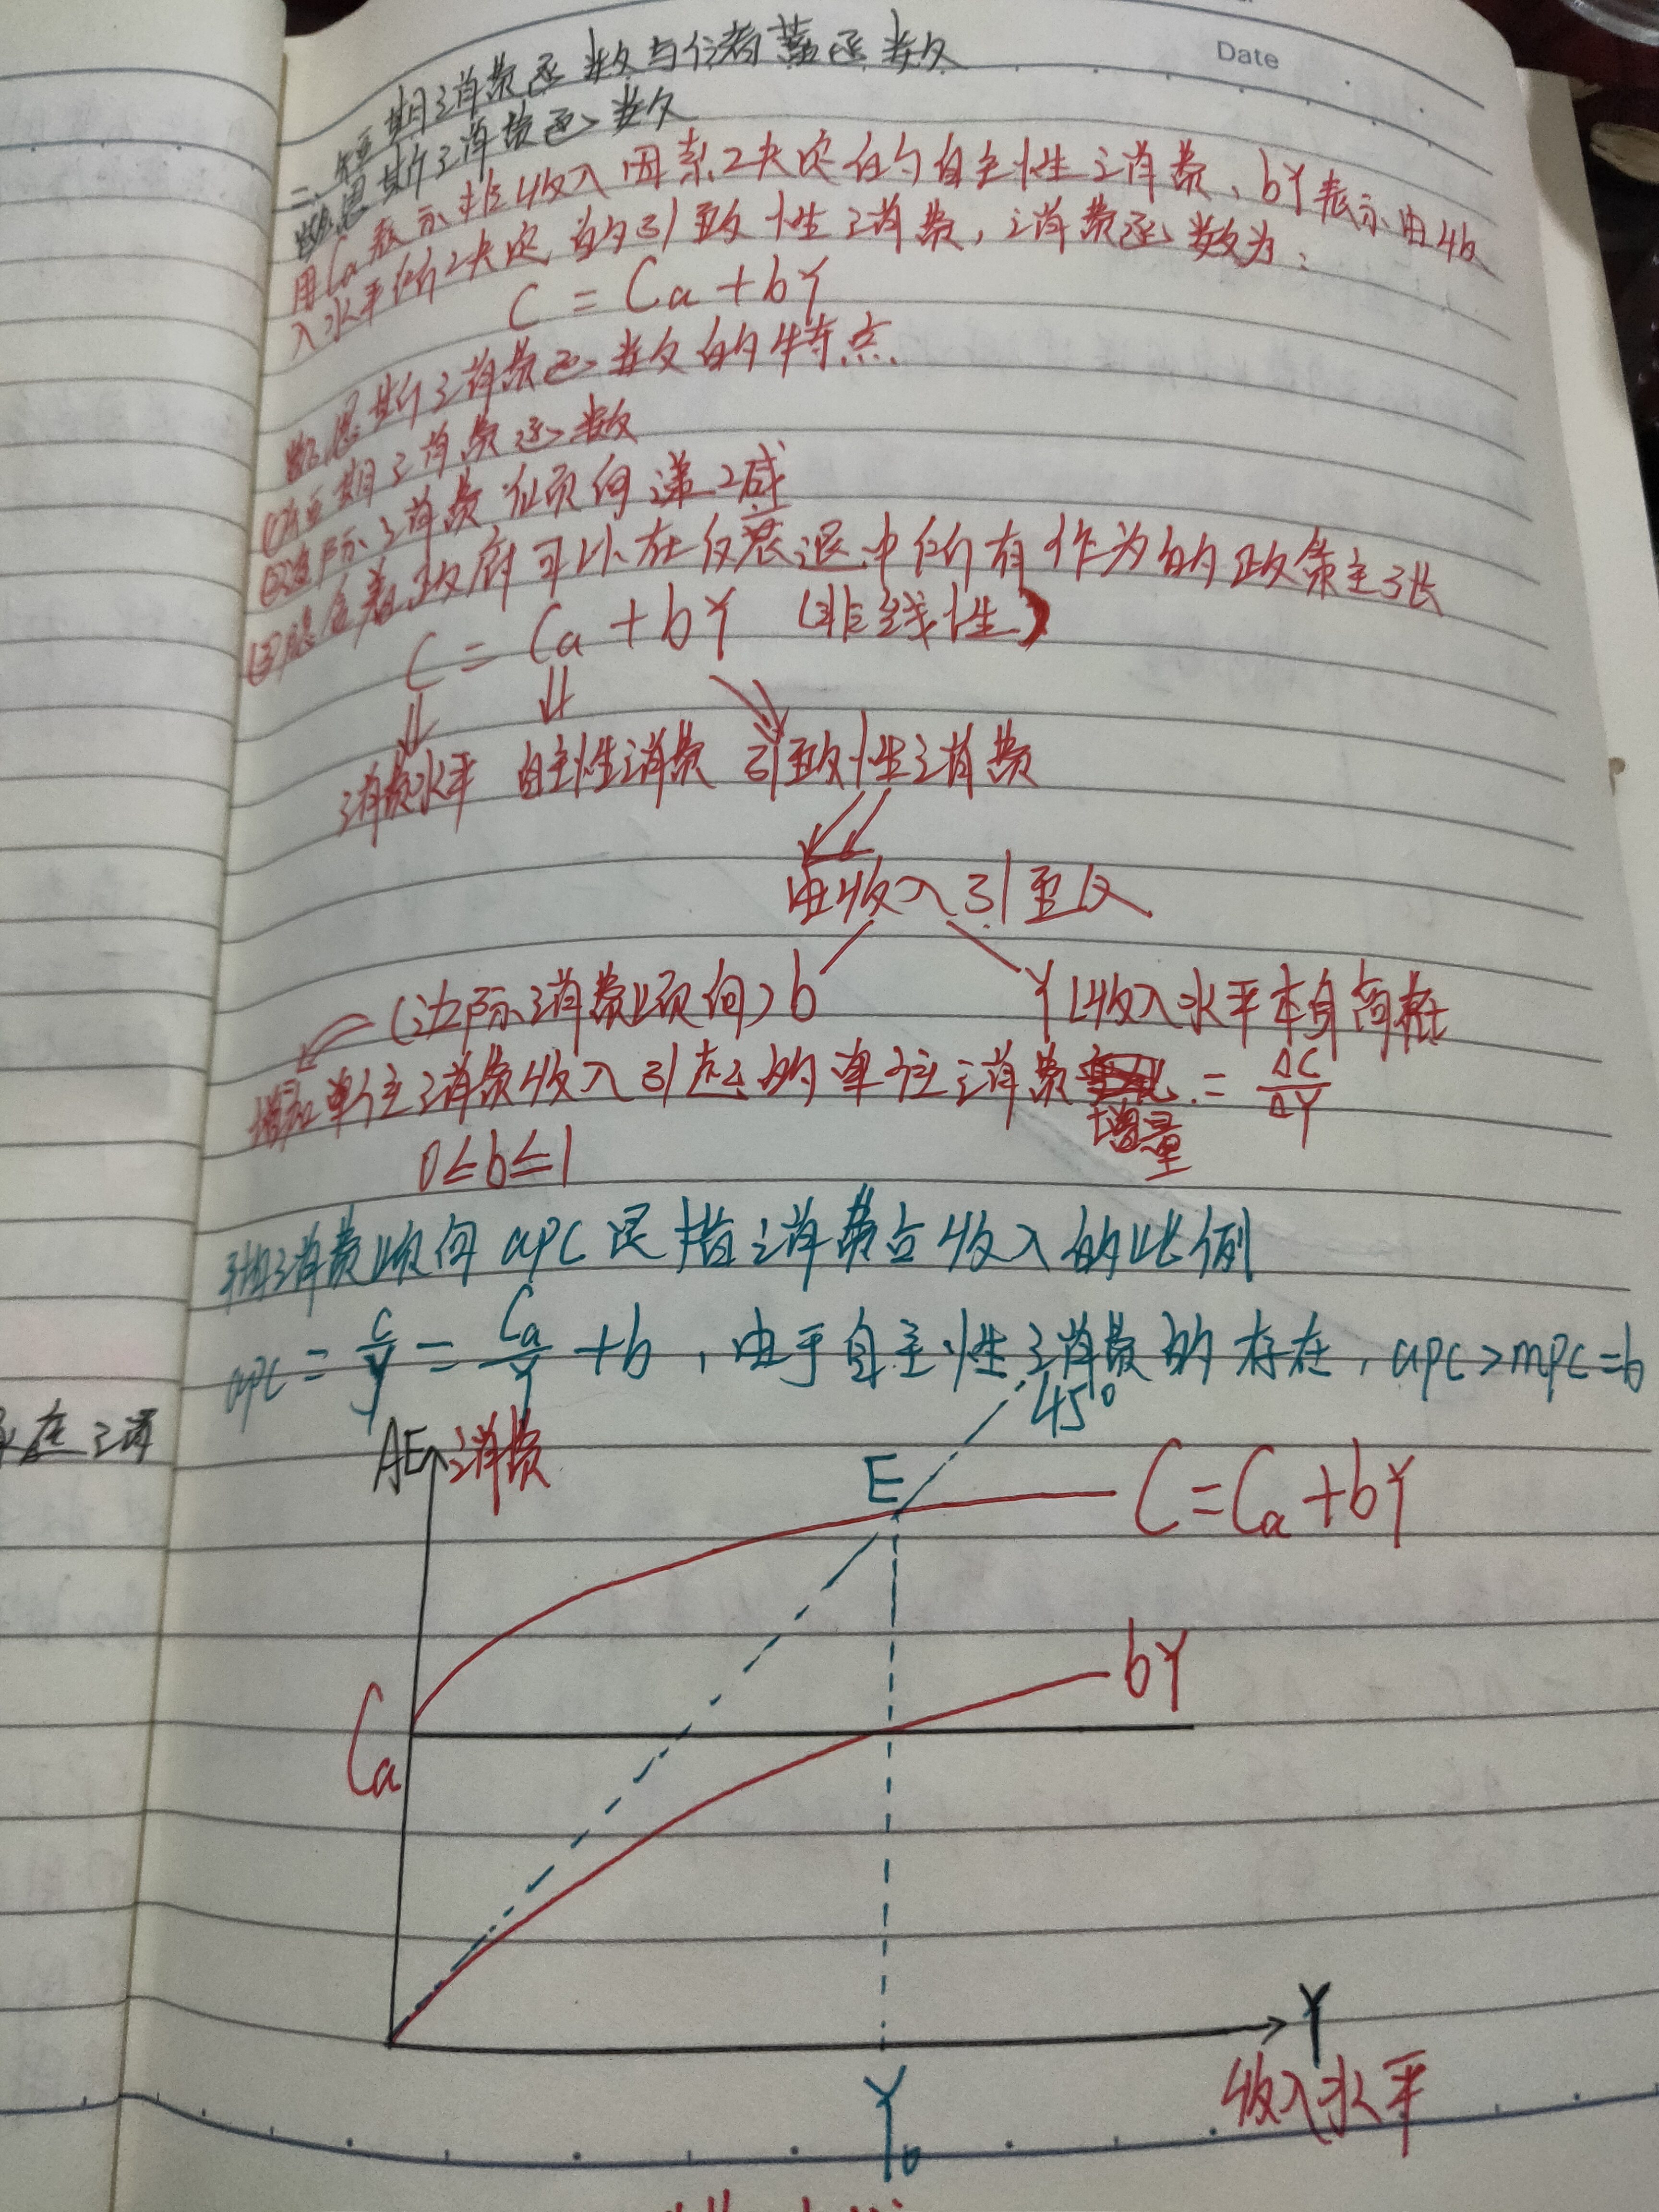 Date
二、短期消费函数与储蓄函数
凯恩斯消费函数
用Ca表示非收入因素决定的自主性消费、bY表示由收
入水平所决定的引致性消费，消费函数为：
C = Ca + bY
凯恩斯消费函数的特点
①短期消费函数
②边际消费倾向递减
③隐含着政府可以在衰退中所有作为的政策主张
C = Ca + bY (非线性)
消费水平 自主性消费 引致性消费
由收入引致
(边际消费倾向) b Y 收入水平本身
增加单位消费收入引起的单位消费增量 = ΔC/ΔY
0≤b≤1
平均消费倾向 apc 是指消费占收入的比例
apc = C/Y = Ca/Y + b，由于自主性消费的存在，apc>mpc=b
45°
AE 消费
E
C=Ca+bY
bY
Ca
Y
收入水平
Y₀